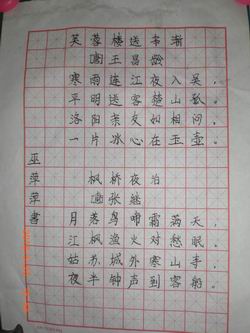 芙蓉楼送辛渐
唐王昌龄
寒雨连江夜入吴，
平明送客楚山孤。
洛阳亲友如相问，
一片冰心在玉壶。
枫桥夜泊
唐张继
月落乌啼霜满天，
江枫渔火对愁眠。
姑苏城外寒山寺，
夜半钟声到客船。
巫萍萍書